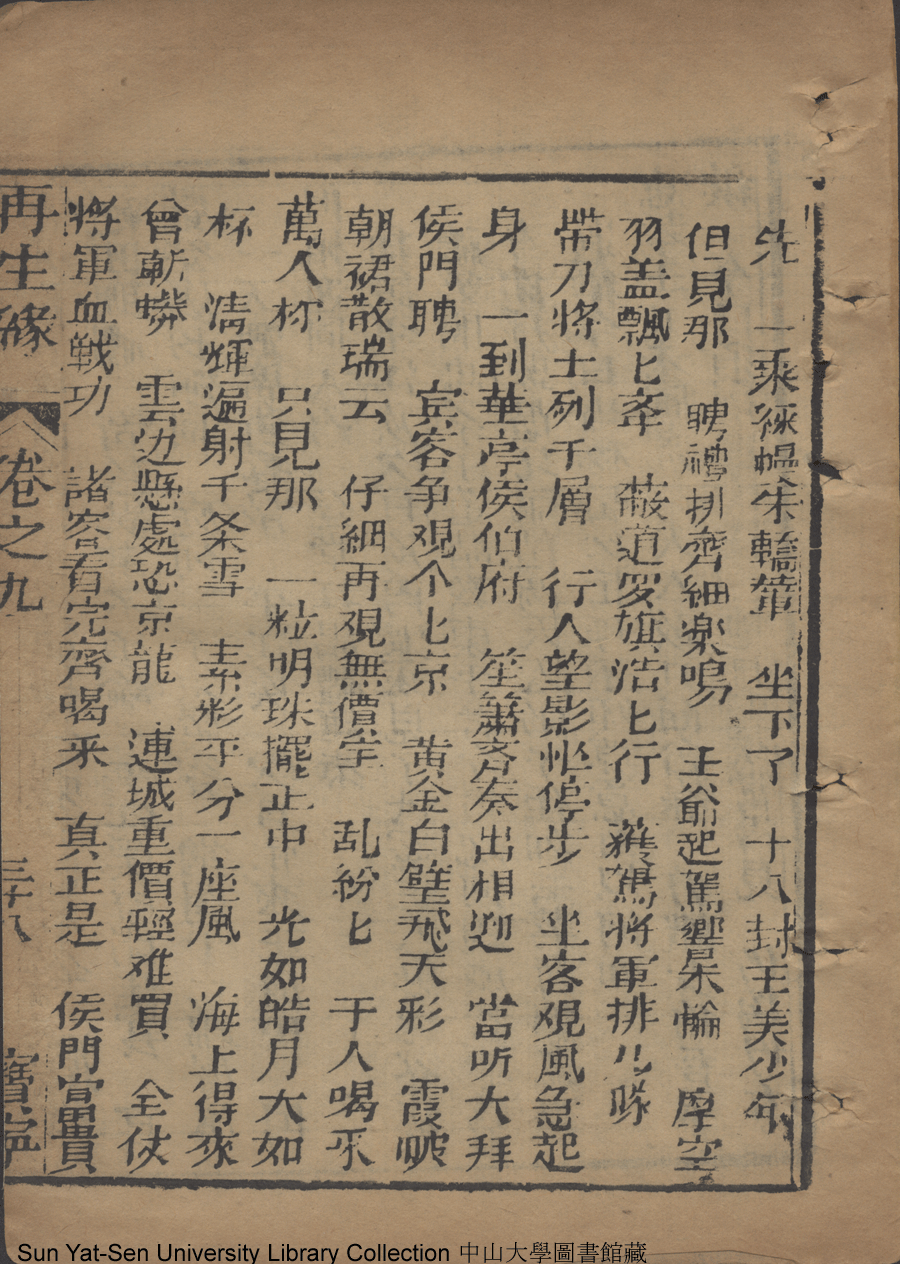 先　一乘徐幌朱轎輦　坐下了　十八封王美少年
但見那　聘禮排齊細樂鳴　王爺起駕響朱輪　摩空
羽盖飄匕牽　蔽道罗旗浩匕行　護駕將軍排几隊
帶刀將士列千層　行人望影忙停步　坐客覌風急起
身　一到華亭侯伯府　笙簫齐奏出相迎　當听大拜
侯門聘　宾客争覌个匕京　黄金白壁飛天彩　霞帔
朝裙散瑞云　仔細再覌無價宝　乱紛匕　千人喝采
萬人杯　只見那　一粒明珠擺正中　光如皓月大如
杯　清輝遍射千条雪　素彩平分一座風　海上得來
曾斬蠎　雲边懸處恐京龍　連城重價輕难買　全仗
將軍血戰功　諸客看完齊喝采　真正是　侯門富貴
再生緣　卷之九　三十八　寶寧
Sun Yat-Sen University Library Collection 中山大學圖書館藏